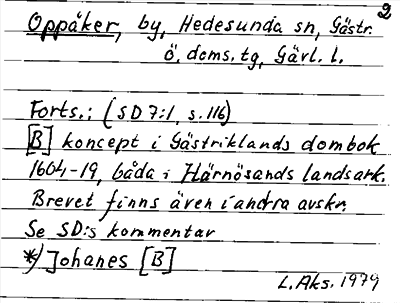 2
Oppåker, by, Hedesunda sn, Gästr.
ö. doms. tg, Gävl. l.
Forts.: (SD 7:1, s. 116)
[B] koncept i Gästriklands dombok
1604-19, båda i Härnösands landsark.
Brevet finns även i andra avskr.
Se SD:s kommentar
*) Johanes [B]
L. Aks. 1979